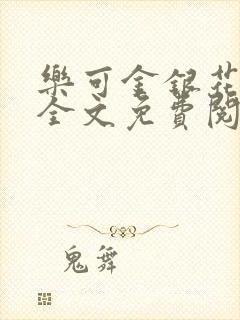 樂可金銀花
全文免費閱
鬼舞